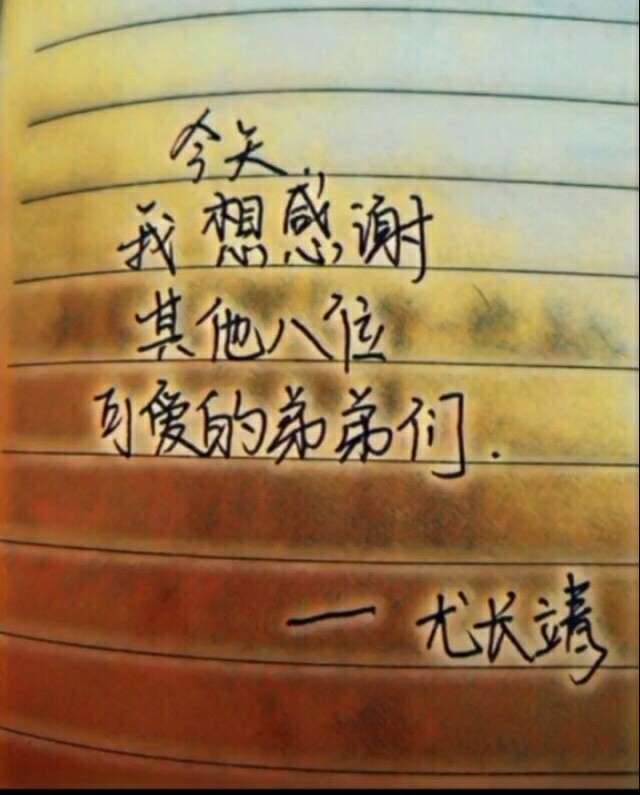 今天,
我想感谢
其他八位
可爱的弟弟们.
— 尤长靖